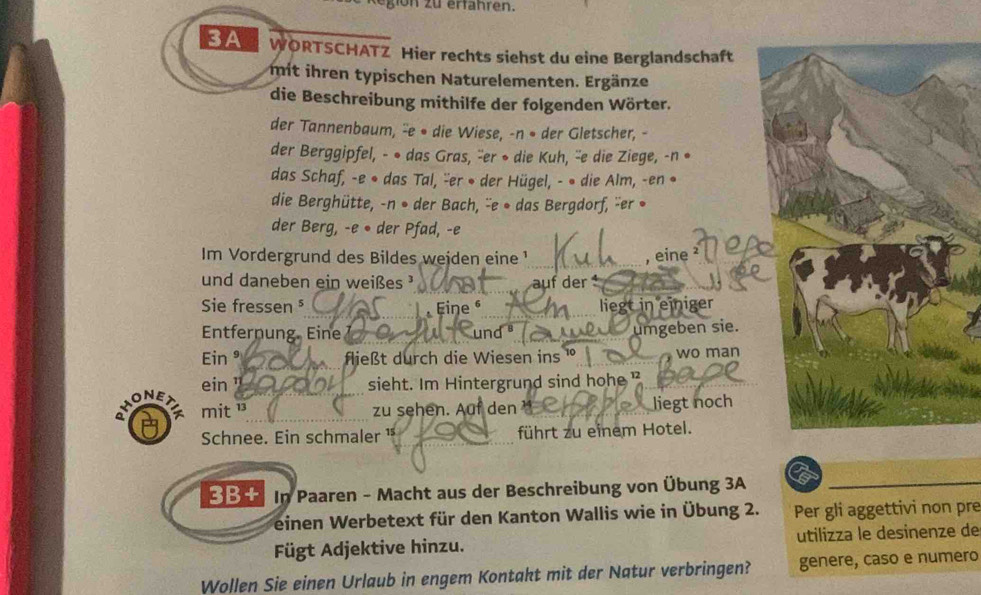 Region zu erfahren.
3A WORTSCHATZ Hier rechts siehst du eine Berglandschaft
mit ihren typischen Naturelementen. Ergänze
die Beschreibung mithilfe der folgenden Wörter.
der Tannenbaum, ¨-e • die Wiese, -n • der Gletscher, -
der Berggipfel, - • das Gras, ¨-er • die Kuh, ¨-e die Ziege, -n •
das Schaf, -e • das Tal, ¨-er • der Hügel, - • die Alm, -en •
die Berghütte, -n • der Bach, ¨-e • das Bergdorf, ¨-er •
der Berg, -e • der Pfad, -e
Im Vordergrund des Bildes weiden eine ¹ Kuh, eine ² Ziege
und daneben ein weißes ³ Schaf auf der ⁴
Sie fressen ⁵ Gras. Eine ⁶ Alm liegt in einiger
Entfernung. Eine ⁷ und ⁸ umgeben sie.
Ein ⁹ fließt durch die Wiesen ins ¹⁰ Tal, wo man
ein ¹¹ sieht. Im Hintergrund sind hohe ¹² Bage
mit ¹³ zu sehen. Auf den ¹⁴ liegt noch
Schnee. Ein schmaler ¹⁵ Pfad führt zu einem Hotel.
PHONETIK
3B+ In Paaren – Macht aus der Beschreibung von Übung 3A
einen Werbetext für den Kanton Wallis wie in Übung 2.
Fügt Adjektive hinzu.
Wollen Sie einen Urlaub in engem Kontakt mit der Natur verbringen?
Per gli aggettivi non pre
utilizza le desinenze de
genere, caso e numero